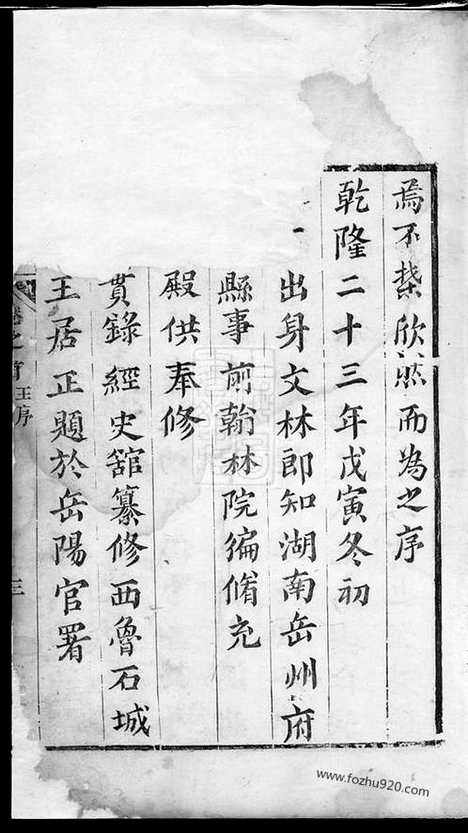 焉不禁欣然而為之序
乾隆二十三年戊寅冬初
出身文林郎知湖南岳州府
縣事前翰林院編脩充
殿供奉修
貫錄經史舘纂修西魯石城
王居正題於岳陽官署
卷之首 王序 三
www.fozhu920.com